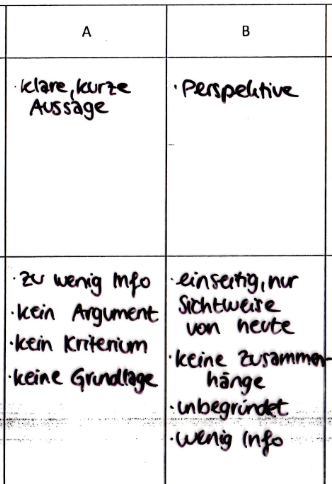 A
B
· klare, kurze
Aussage
· Perspektive
· zu wenig Info
· kein Argument
· kein Kriterium
· keine Grundlage
· einseitig, nur
Sichtweise
von heute
· keine Zusammen-
hänge
· unbegründet
· wenig Info